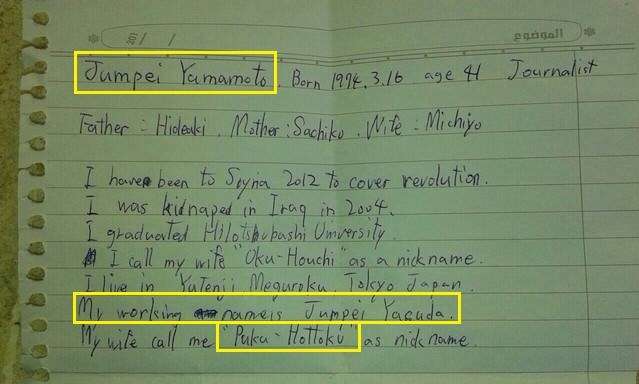 الموضوع
Jumpei Yamamoto. Born 1974.3.16 age 41 Journalist
Father : Hideaki. Mother : Sachiko. Wife : Michiyo
I have been to Syria 2012 to cover revolution.
I was kidnaped in Iraq in 2004.
I graduated Hitotshubashi University.
I call my wife "Oku-Houchi" as a nickname.
I live in Yutenji Meguroku, Tokyo Japan.
My working name is Jumpei Yasuda.
My wife call me "Puku-Hottoku" as nickname.